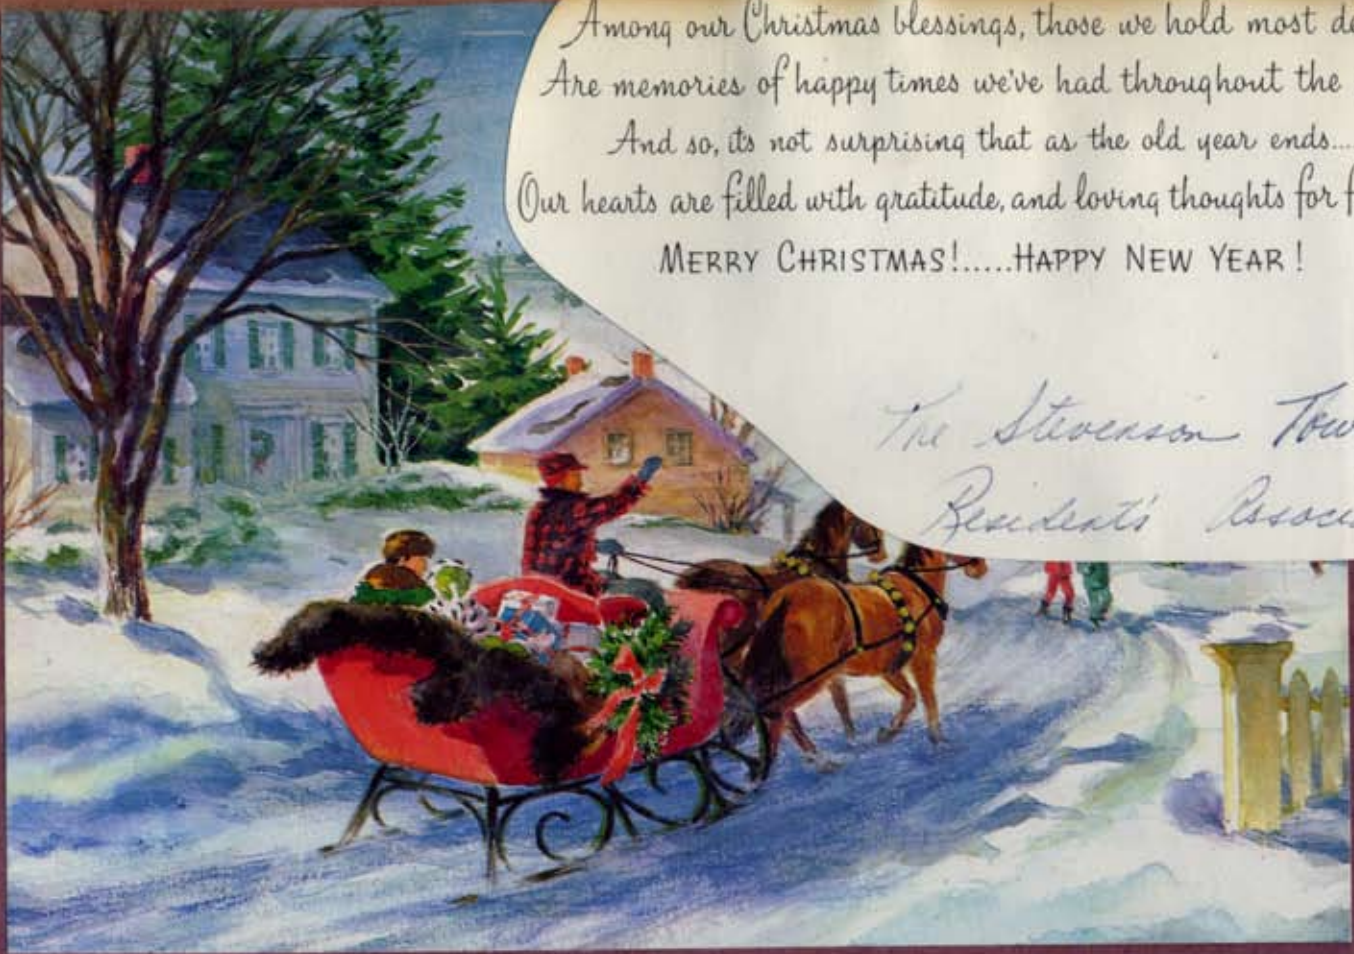 Among our Christmas blessings, those we hold most
Are memories of happy times we've had throughout the
And so, it's not surprising that as the old year ends...
Our hearts are filled with gratitude, and loving thoughts for
MERRY CHRISTMAS!.....HAPPY NEW YEAR!
The Stevenson
Resident's